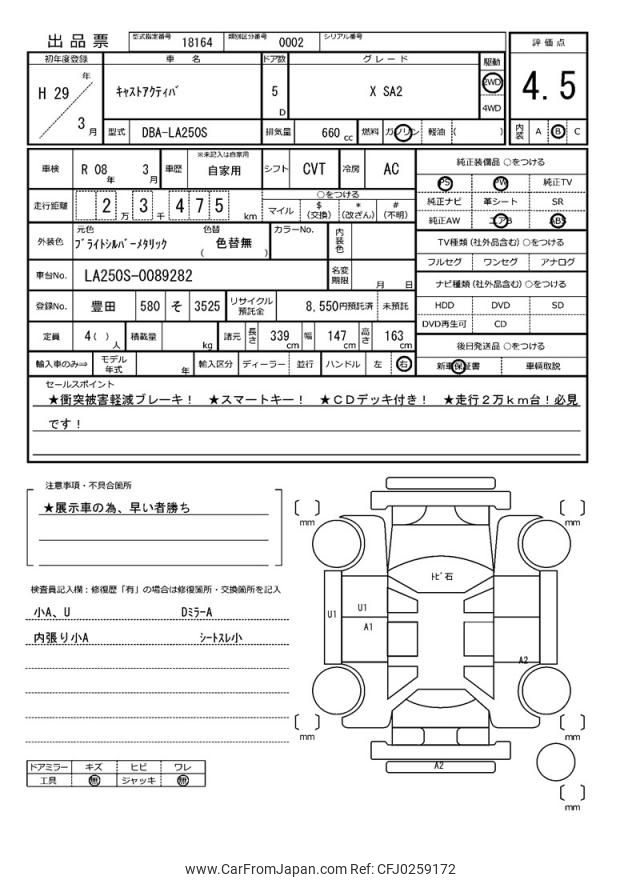 出品票 型式指定番号 18164 類別区分番号 0002 シリアル番号
初年度登録 車名 ドア数 グレード 駆動 評価点
H 29 年 3 月 キャストアクティバ 5 D X SA2 2WD 4WD 4.5
型式 DBA-LA250S 排気量 660 cc 燃料 ガソリン 軽油 ( ) 内装 A B C
車検 R 08 年 3 月 車歴 ※未記入は自家用 自家用 シフト CVT 冷房 AC
純正装備品 ○をつける
PS PW 純正TV
純正ナビ 革シート SR
純正AW エアB ABS
走行距離 2 万 3 千 4 7 5 km
○をつける
マイル $ (交換) * (改ざん) # (不明)
外装色 元色 ブライトシルバーメタリック 色替 ( 色替無 ) カラーNo. 内装色
TV種類 (社外品含む) ○をつける
フルセグ ワンセグ アナログ
車台No. LA250S-0089282 名変期限 月 日
ナビ種類 (社外品含む) ○をつける
HDD DVD SD
DVD再生可 CD
登録No. 豊田 580 そ 3525 リサイクル預託金 8,550円預託済 未預託
定員 4( )人 積載量 kg 諸元 長さ 339 cm 幅 147 cm 高さ 163 cm
後日発送品 ○をつける
新車保証書 車輌取説
輸入車のみ⇒ モデル年式 年 輸入区分 ディーラー 並行 ハンドル 左 右
セールスポイント
★衝突被害軽減ブレーキ! ★スマートキー! ★CDデッキ付き! ★走行2万km台!必見
です!
注意事項・不具合箇所
★展示車の為、早い者勝ち
検査員記入欄:修復歴「有」の場合は修復箇所・交換箇所を記入
小A、U DミラーA
内張り小A シートスレ小
ドアミラー キズ ヒビ ワレ
工具 無 ジャッキ 無
mm
mm
トビ石
U1
U1
A1
A2
mm
mm
A2
mm
www.CarFromJapan.com Ref: CFJ0259172